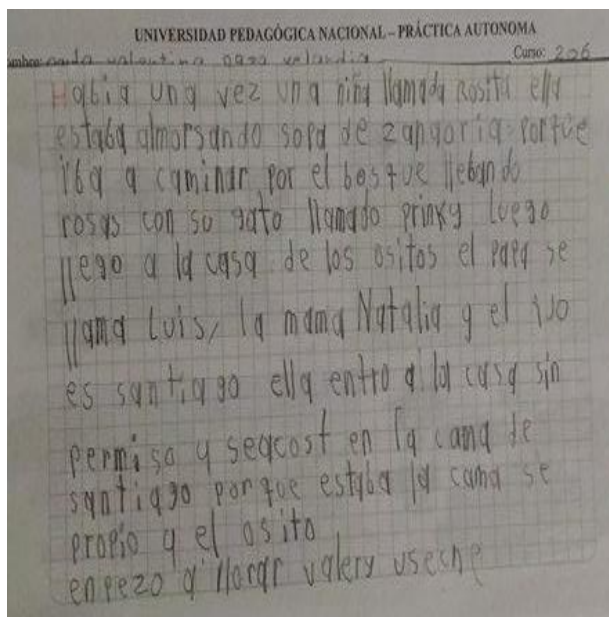 UNIVERSIDAD PEDAGÓGICA NACIONAL – PRÁCTICA AUTONOMA
valentina Curso: 206
Habia una vez una niña llamada Rosita ella
estaba almorsando sopa de zanaoria porque
iba a caminar por el bosque llebando
rosas con su gato llamado prinxy luego
llego a la casa de los ositos el papa se
llama Luis, la mama Natalia y el
es santiago ella entro a la casa sin
permiso y seacost en la cama de
santiago porque estaba la cama se
propio y el osito
enpezo a llorar valery useche